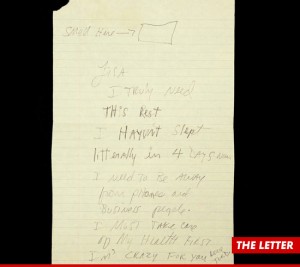 Lisa
I TRULY Need
THIS REST
I HAVIN'T Slept
litterally in 4 DAYS now
I need to Be Away
from phones and
Business people.
I Must Take care
of My Health First
I'm CRAZY FOR you
THE LETTER